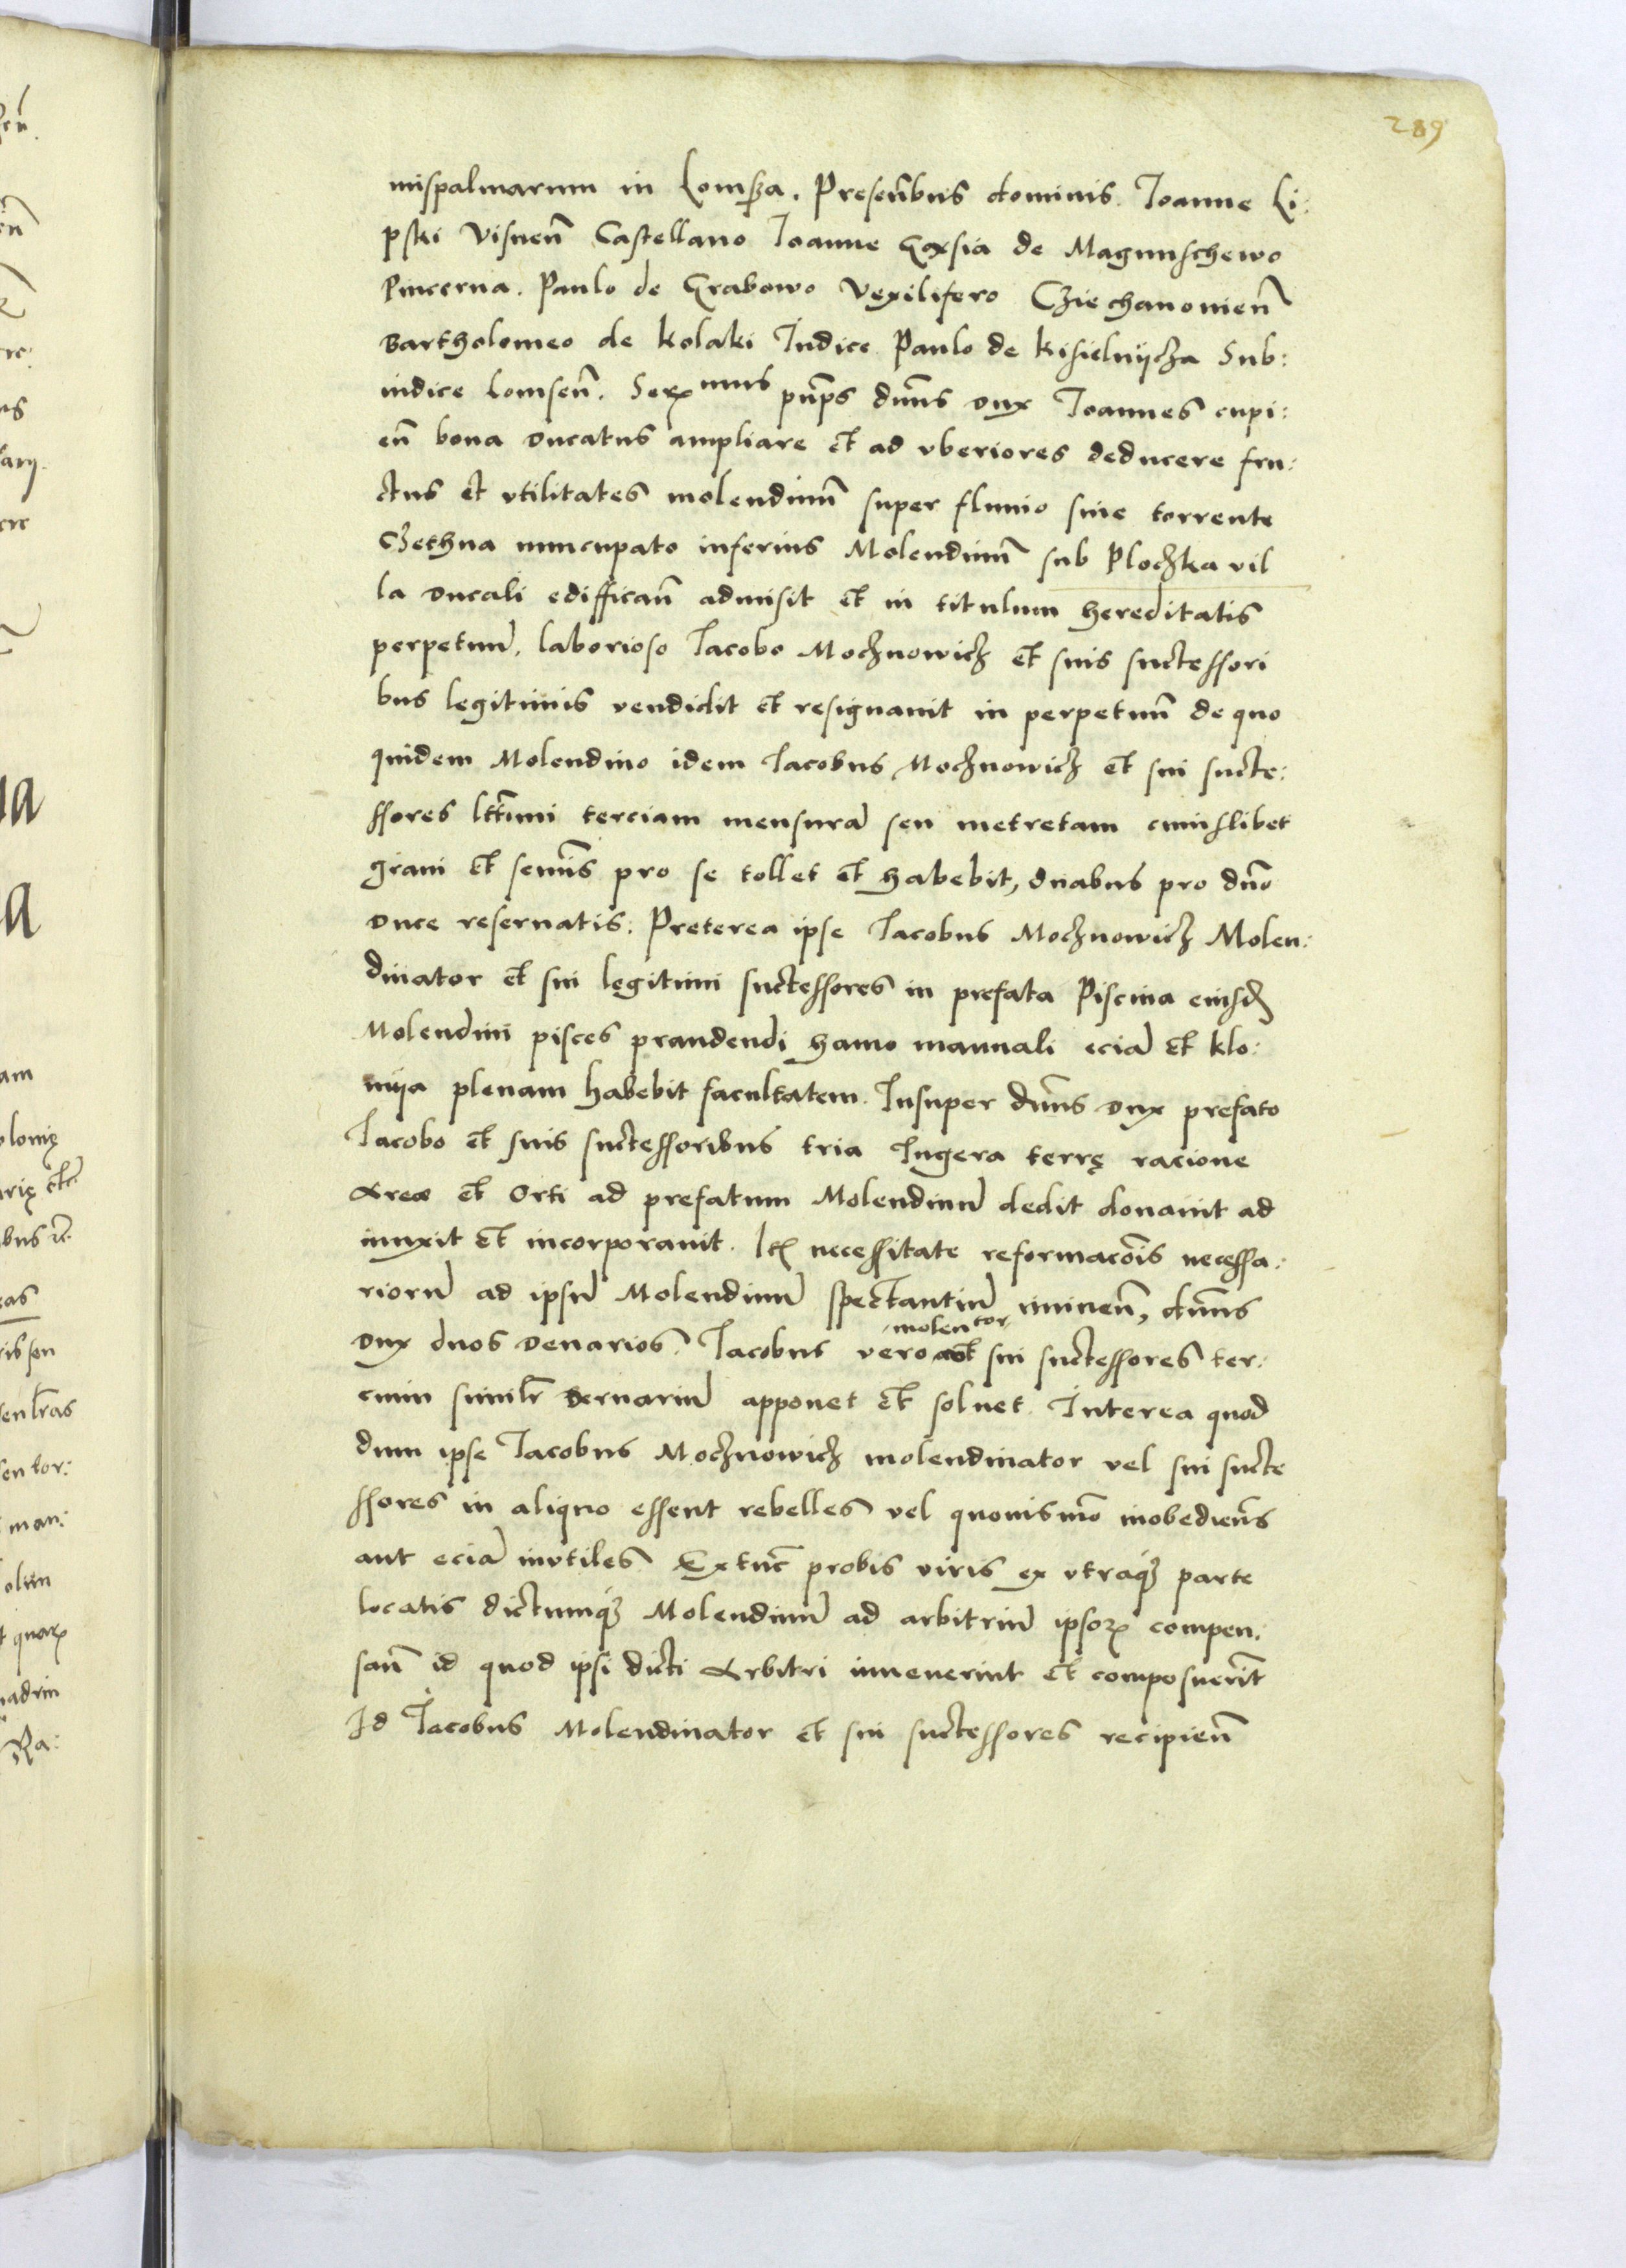 289
mispalmarum in Lomza. Presentibus dominis Ioanne Li:
pski Visnen̄ Castellano Ioanne Goxsia de Magnuschewo
Pincerna. Paulo de Grabowo Vexilifero Cziechanonien̄
Bartholomeo de Kolaki Iudice Paulo de Kisielnijcza Sub:
iudice Lomsen̄. Serꝫ mus pn̄ps dūns dux Ioannes cupi:
en̄ bona ducatus ampliare et ad vberiores deducere fru:
ctus et vtilitates molendinū super fluuio siue torrente
Czethna nuncupato inferius Molendinū sub Ploczka vil
la ducali ediffican̄ admisit et in titulum hereditatis
perpetuū. laborioso Iacobo Mocznowicz et suis successori
bus legitimis vendidit et resignauit in perpetuū de quo
quidem Molendino idem Iacobus Mocznowicz et sui succe:
ssores lttīmi terciam mensurā seu metretam cuiuslibet
grani et semīs pro se tollet et habebit, duabus pro dnō
duce reseruatis. Preterea ipse Iacobus Mocznowicz Molen:
dinator et sui legitimi successores in prefata Piscina eiusd
Molendini pisces prandendi hamo manuali eciā et klo:
mija plenam habebit facultatem. Insuper dūns dux prefato
Iacobo et suis successoribus tria Iugera terrę racione
Areæ et Orti ad prefatum Molendinū dedit donauit ad
iunxit et incorporauit. Itꝫ necessitate reformacōis necessa:
riorū ad ipsū Molendinū spectantiū iminen̄, dūns
molentor
dux duos denarios. Iacobus vero et sui successores ter:
cium simil̄r denariū apponet et soluet. Interea quod
dum ipse Iacobus Mocznowicz molendinator vel sui succe
ssores in aliquo essent rebelles vel quouismō inobediens
aut eciā invtiles Extūc probis viris ex vtraqꝫ parte
locatis dictumqꝫ Molendinū ad arbitriū ipsoꝝ compen:
san̄ id quod ipsi dicti Arbitri inuenerint et composuerīt
Id Iacobus Molendinator et sui successores recipien̄